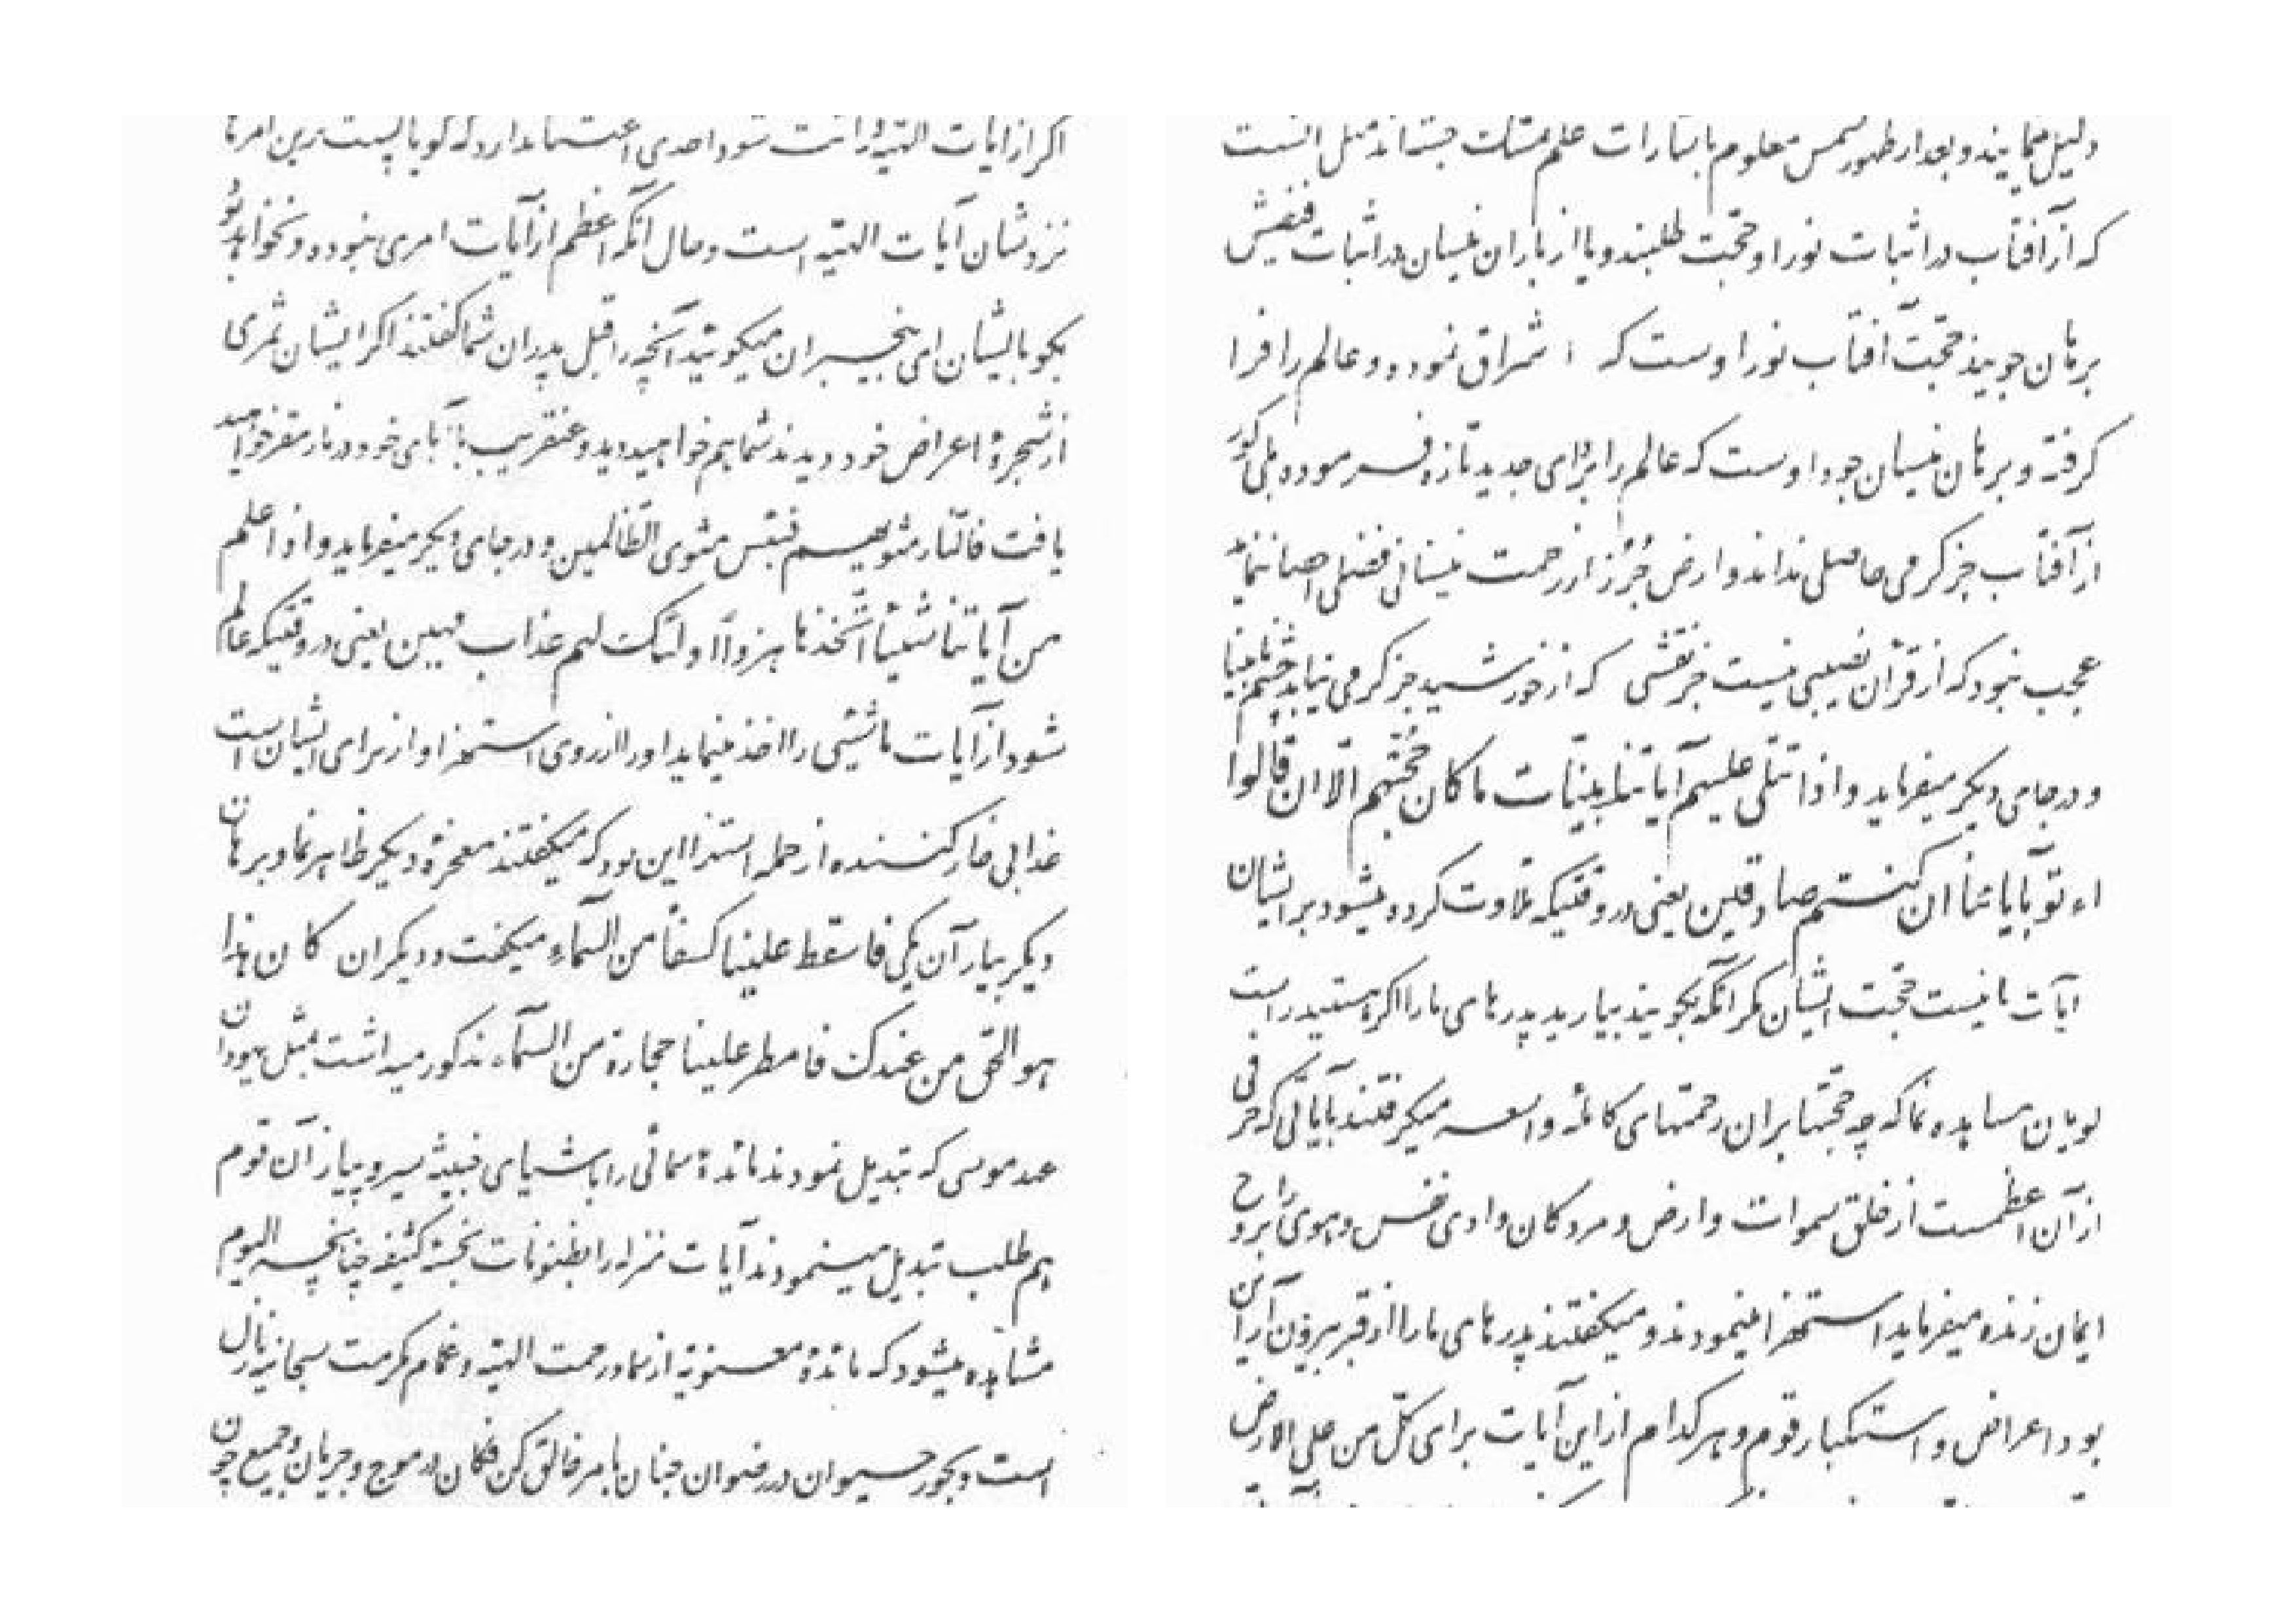 دلیل می‌نمایند و بعد از ظهور شمس معلوم باشارات علم تمسّک جسته‌اند مثل آنست
که از آفتاب در اثبات نور او حجّت طلبند و یا از باران نیسان در اثبات فیضش
برهان جویند حجّت آفتاب نور اوست که اشراق نموده و عالم را فرا
گرفته و برهان نیسان جود اوست که عالم را بردای جدید تازه فرموده بلی کور
از آفتاب جز گرمی حاصلی نداند و ارض جُرُز از رحمت نیسانی فضلی احصا ننماید
عجب نبود که از قرآن نصیبی نیست جز نقشی که از خورشید جز گرمی نیابد چشم نابینا
و در جای دیگر میفرماید و اذا تتلی علیهم آیاتنا بیّنات ما کان حُجّتهم الّا ان قالوا
اءتوا بآبائنا ان کنتم صادقین یعنی در وقتیکه تلاوت کرده میشود بر ایشان
آیات ما نیست حجّت ایشان مگر آنکه بگویند بیارید پدرهای ما را اگر هستید راست
گویان مشاهده نما که چه حجّتها بر آن رحمتهای کامله واسعه میگرفتند بآیاتی که حرفی
از آن اعظمست از خلق سموات و ارض و مردگان وادی نفس و هوی را بروح
ایمان زنده میفرماید استهزا مینمودند و میگفتند پدرهای ما را از قبر بیرون آر این
بود اعراض و استکبار قوم و هر کدام از این آیات برای کلّ من علی الارض
اگر از آیات الهیّه قرائت شود احدی اعتنا ندارد که گویا پست‌ترین امرها
نزدشان آیات الهیّه است و حال آنکه اعظم از آیات امری نبوده و نخواهد بود
بگو بایشان ای بیخبران میگوئید آنچه را قبل پدران شما گفتند اگر ایشان ثمری
از شجرهٔ اعراض خود دیدند شما هم خواهید دید و عنقریب با آبای خود در نار مقرّ خواهید
یافت فالنّار مثویهم فبئس مثوی الظّالمین و در جای دیگر میفرماید و اذا علم
من آیاتنا شیئاً اتّخذها هزواً اولئک لهم عذاب مهین یعنی در وقتیکه عالم
شود از آیات ما شیئی را اخذ مینماید او را از روی استهزا و از برای ایشان است
عذابی خارکننده از جمله استهزا این بود که میگفتند معجزهٔ دیگر ظاهر نما و برهان
دیگر بیار آن یکی فاسقط علینا کسفاً من السّماء میگفت و دیگر ان کان هذا
هو الحقّ من عندک فامطر علینا حجارة من السّماء مذکور میداشت بمثل یهودان
عهد موسی که تبدیل نمودند مائدهٔ سمائی را باشیای خبیثه سیر و پیاز آن قوم
هم طلب تبدیل مینمودند آیات منزله را بظنونات نجسهٔ کثیفه چنانچه الیوم
مشاهده میشود که مائدهٔ معنویّه از سماء رحمت الهیّه و غمام مکرمت سبحانیّه نازل
است و بحور حیوان در رضوان جنان بامر خالق کن فکان در موج و جریان و جمیع چون